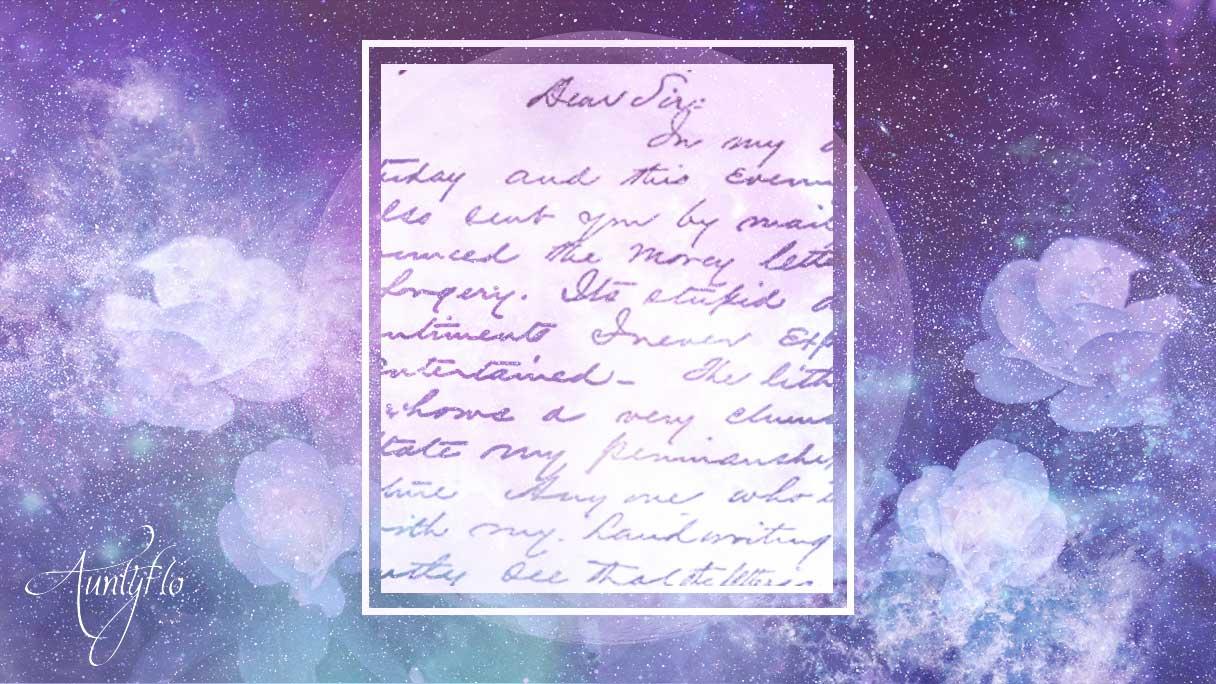 Dear Sir:
In my
and this Evenin
also sent you by mail
the Morey lette
forgery. Its stupid
I never Exp
entertained_ The lith
shows a very clums
my penmanshi
Any one who
with my handwriting
see that the letter
AuntyFlo